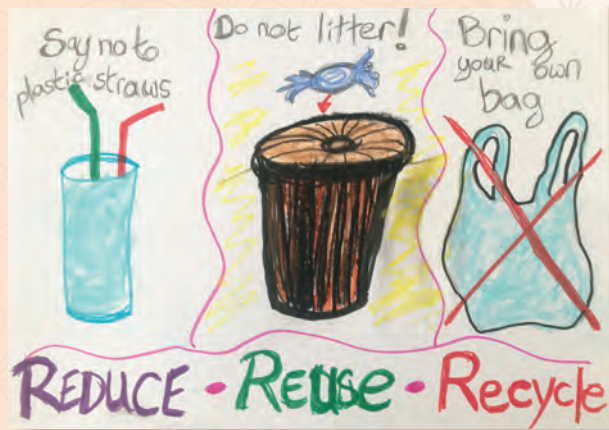 Say no to
plastic straws
Do not litter!
Bring
your own
bag
REDUCE • REUSE • Recycle